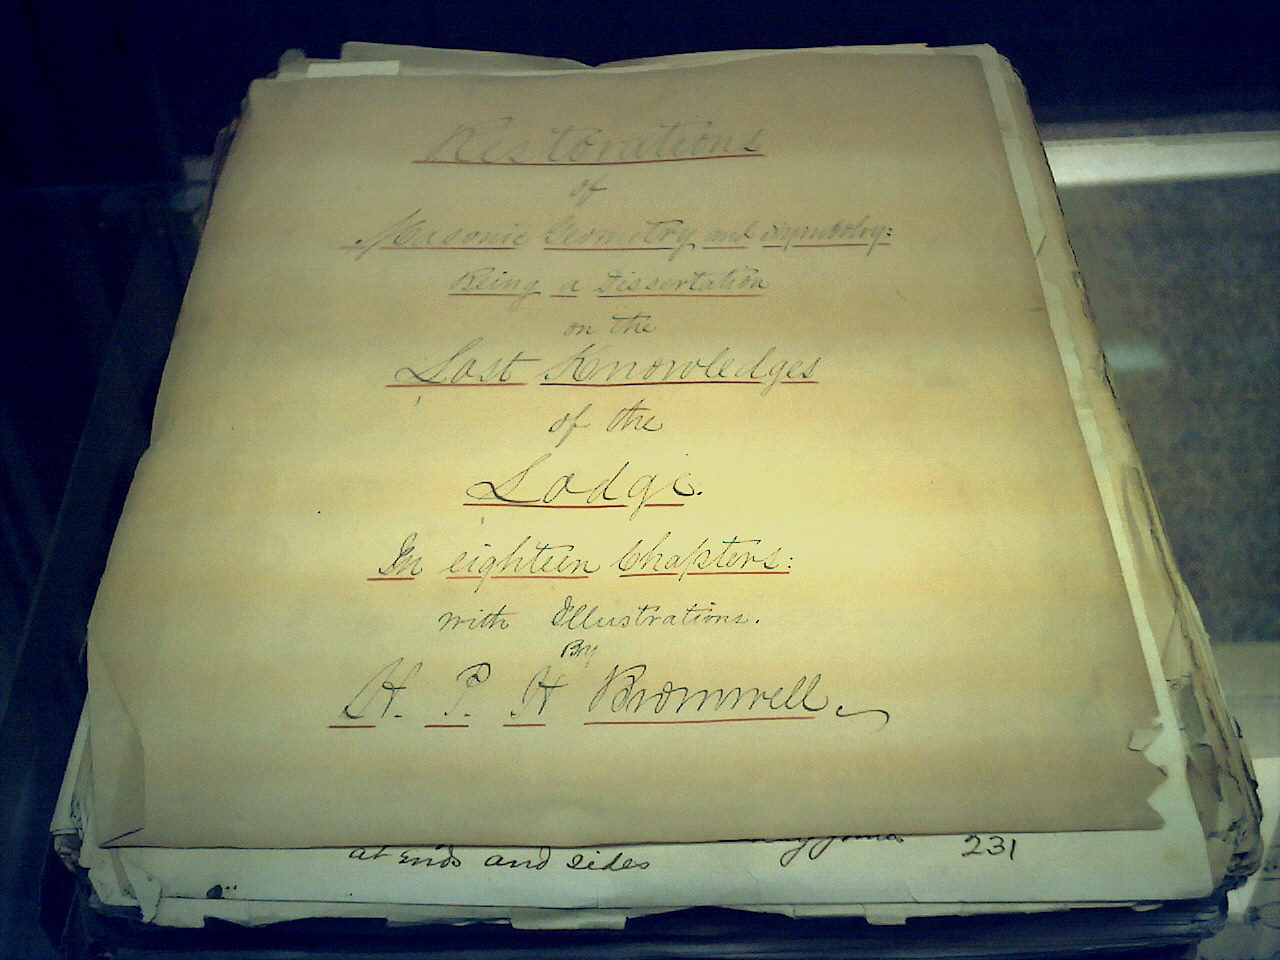 Restorations
of
Masonic Geometry and Symbolry:
Being a Dissertation
on the
Lost Knowledges
of the
Lodge.
In eighteen Chapters:
with Illustrations.
By
H. P. H Bromwell.
at ends and sides
231